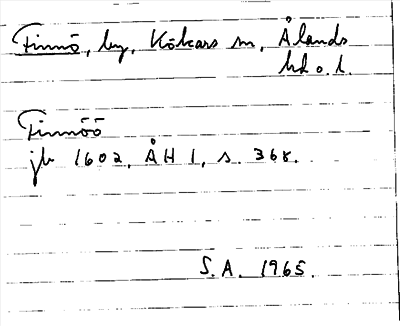 Finnö, by, Kökars sn, Ålands
hd o. l.
Finnöö
jb 1602, ÅH 1, s. 368.
S.A. 1965.